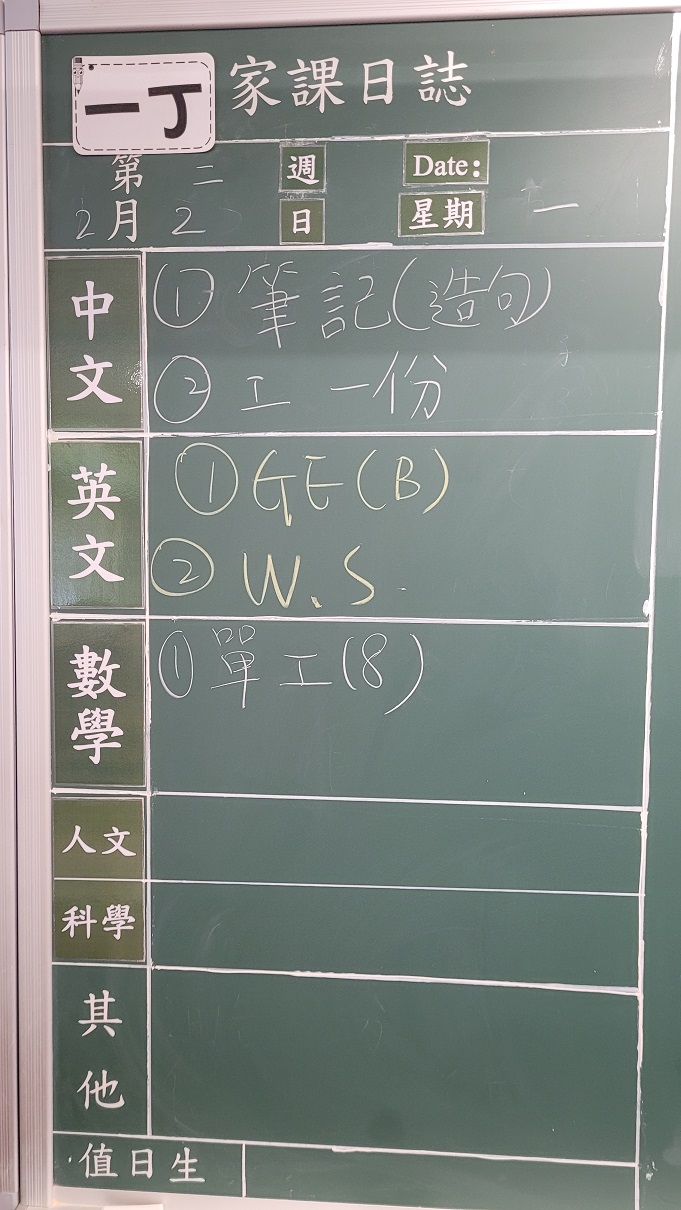 一丁 家課日誌
第 二 週 Date:
2月 2 日 星期 一
中文
① 筆記(造句)
② 工 一份
英文
① GE(B)
② W.S.
數學
① 單工(8)
人文
科學
其他
值日生